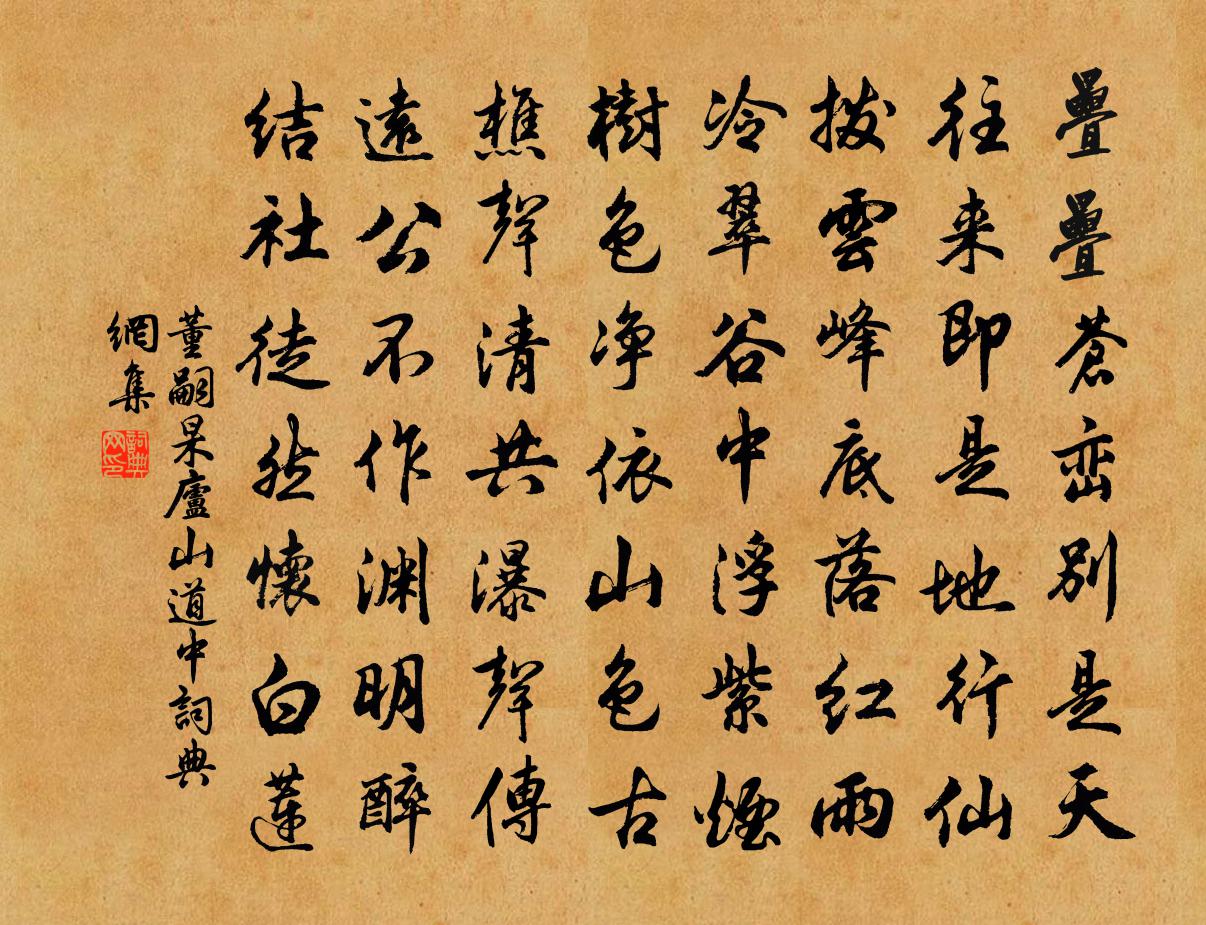 疊疊蒼巒別是天
往来即是地行仙
拨雲峰底落红雨
冷翠谷中浮紫煙
樹色净依山色古
樵聲清共瀑聲傳
遠公不作渊明醉
结社徒然懷白蓮
董嗣杲廬山道中詞典
網集
詞典
网印